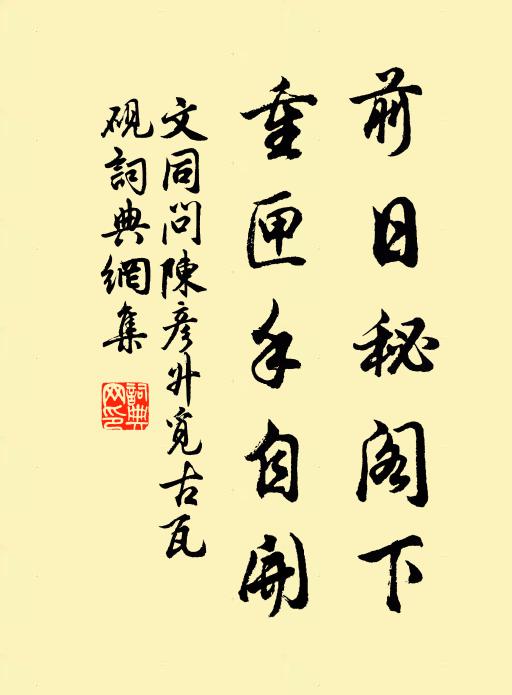 前日秘閣下
重匣手自開
文同問陳彥升覓古瓦
硯詞典網集
詞典网印